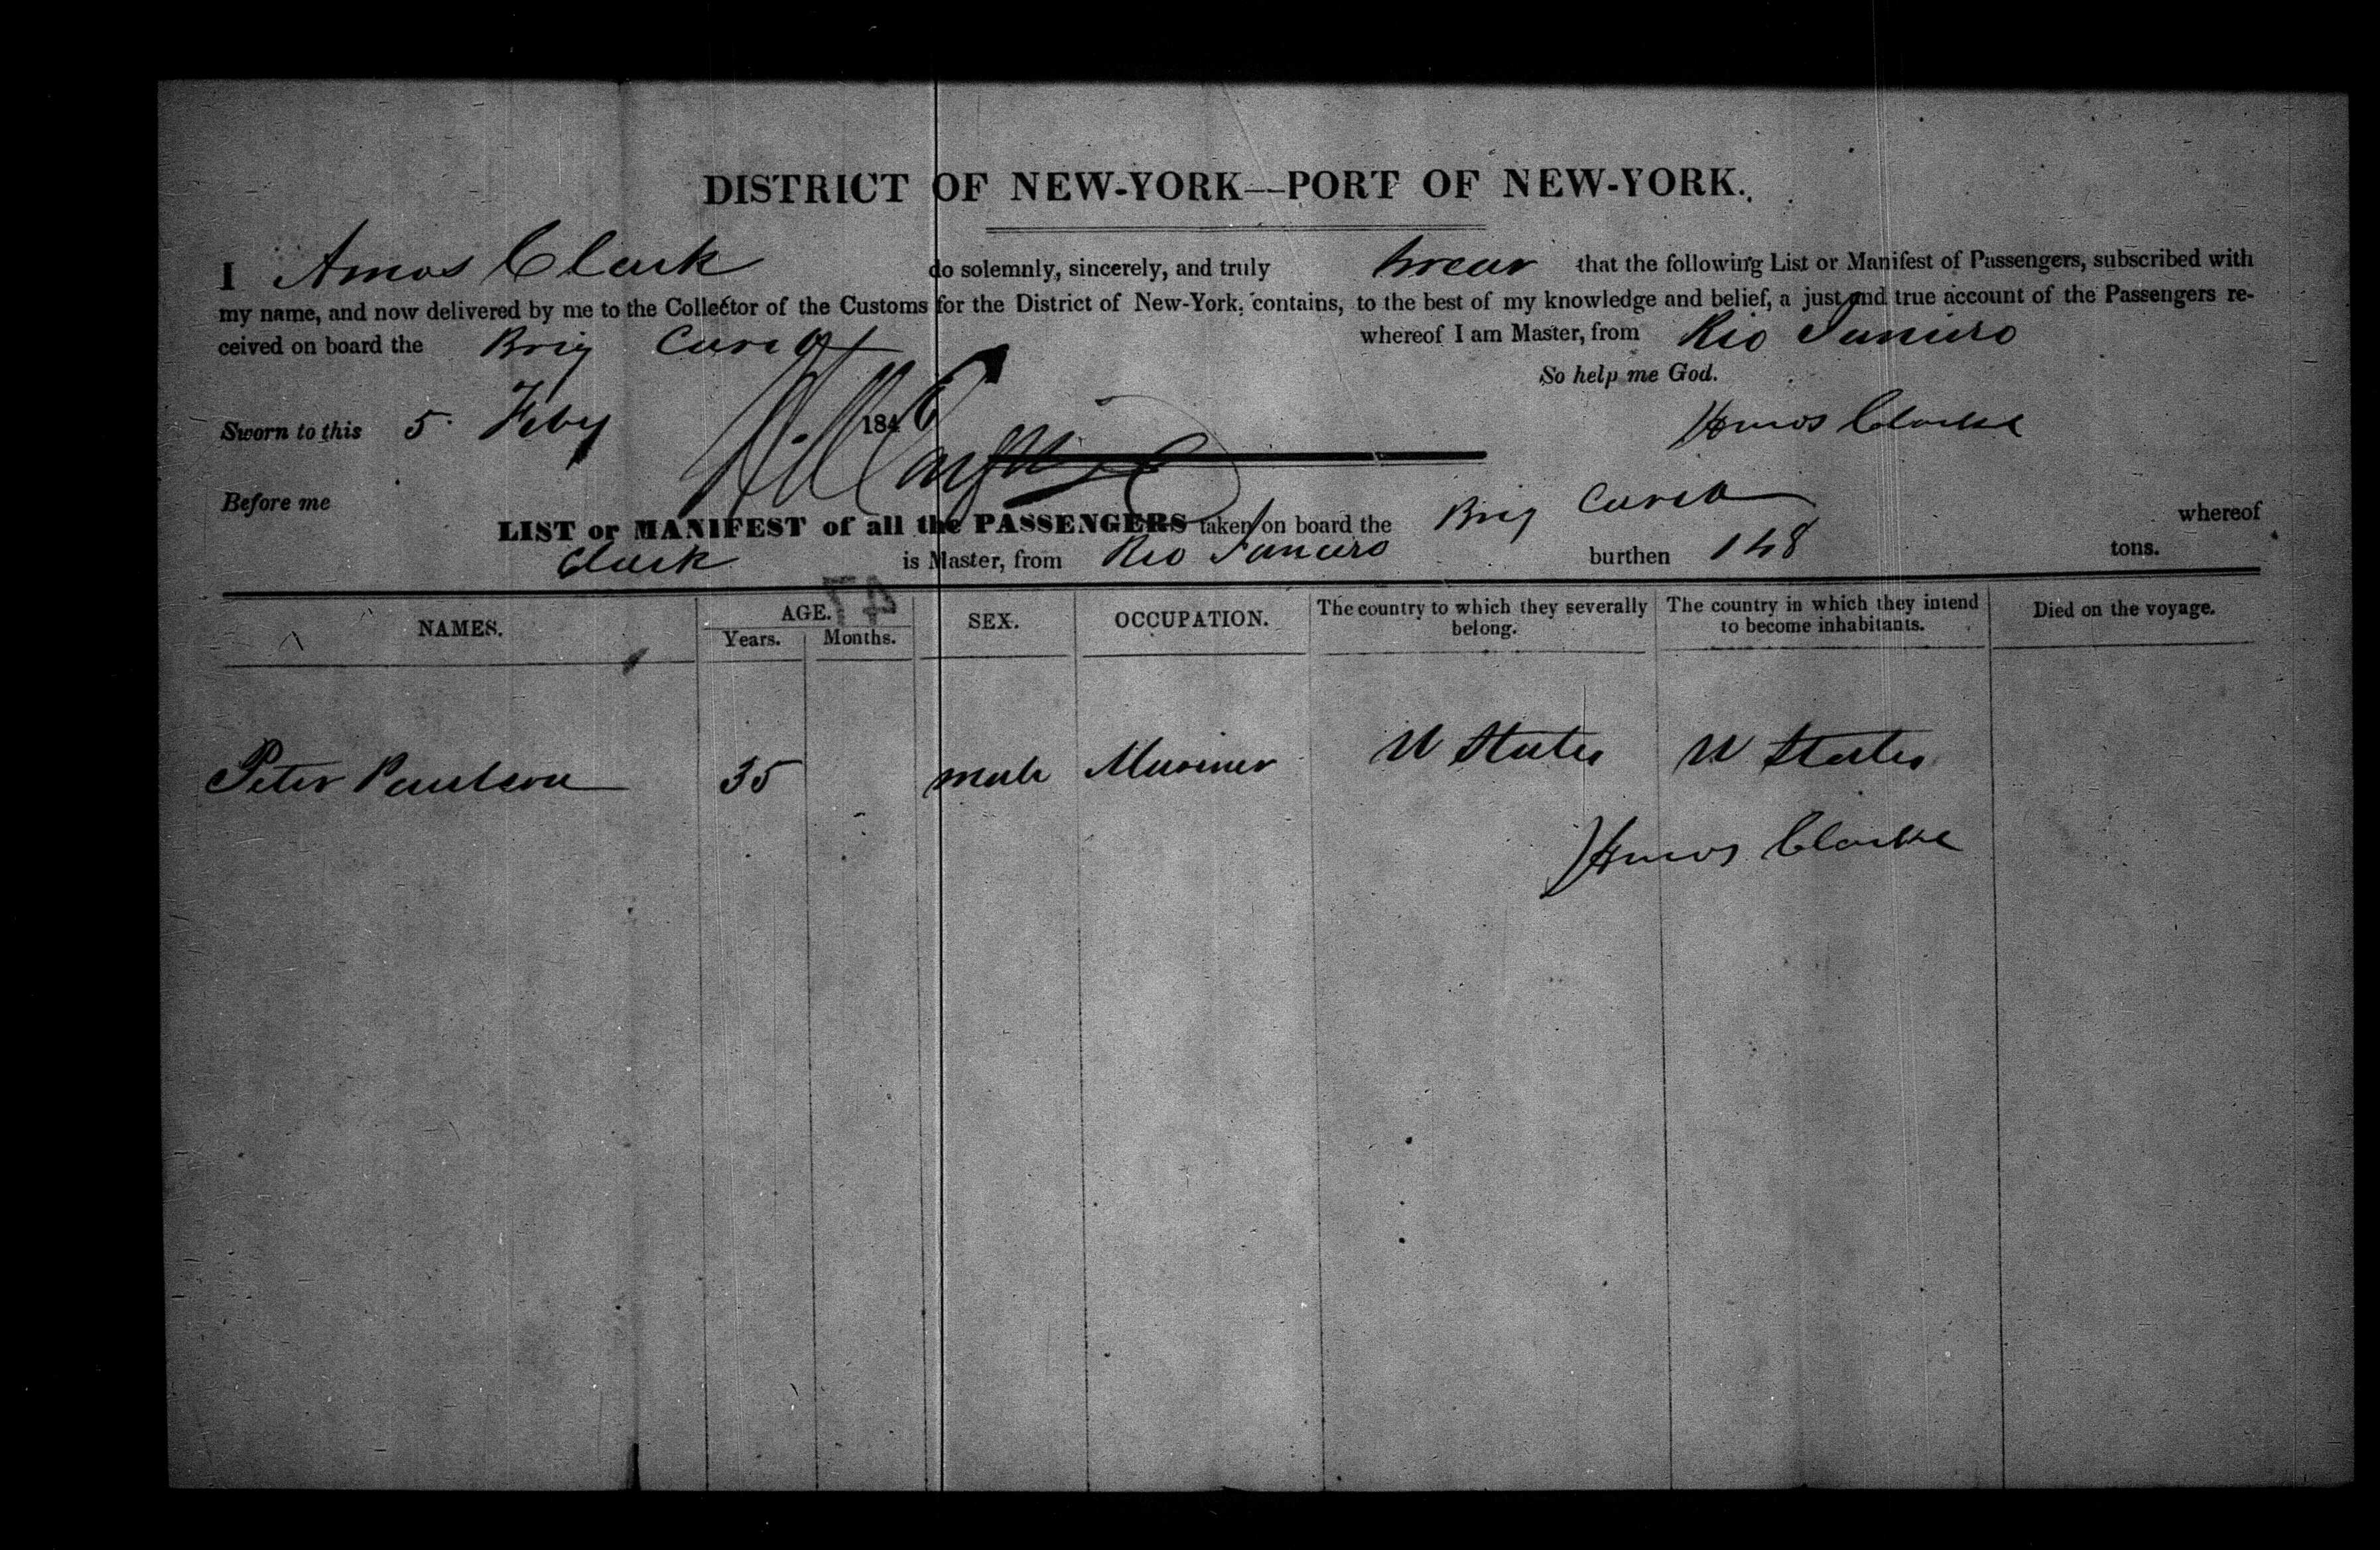 DISTRICT OF NEW-YORK—PORT OF NEW-YORK.
I Amos Clark do solemnly, sincerely, and truly swear that the following List or Manifest of Passengers, subscribed with
my name, and now delivered by me to the Collector of the Customs for the District of New-York, contains, to the best of my knowledge and belief, a just and true account of the Passengers re-
ceived on board the Brig whereof I am Master, from Rio Janeiro
So help me God.
Sworn to this 5 Feby 1846 Amos Clarke
Before me
LIST or MANIFEST of all the PASSENGERS taken on board the Brig whereof
Clark is Master, from Rio Janeiro burthen 148 tons.
NAMES. AGE. Years. Months. SEX. OCCUPATION. The country to which they severally belong. The country in which they intend to become inhabitants. Died on the voyage.
47
Peter Paulson 35 male Mariner U States U States
Amos Clarke